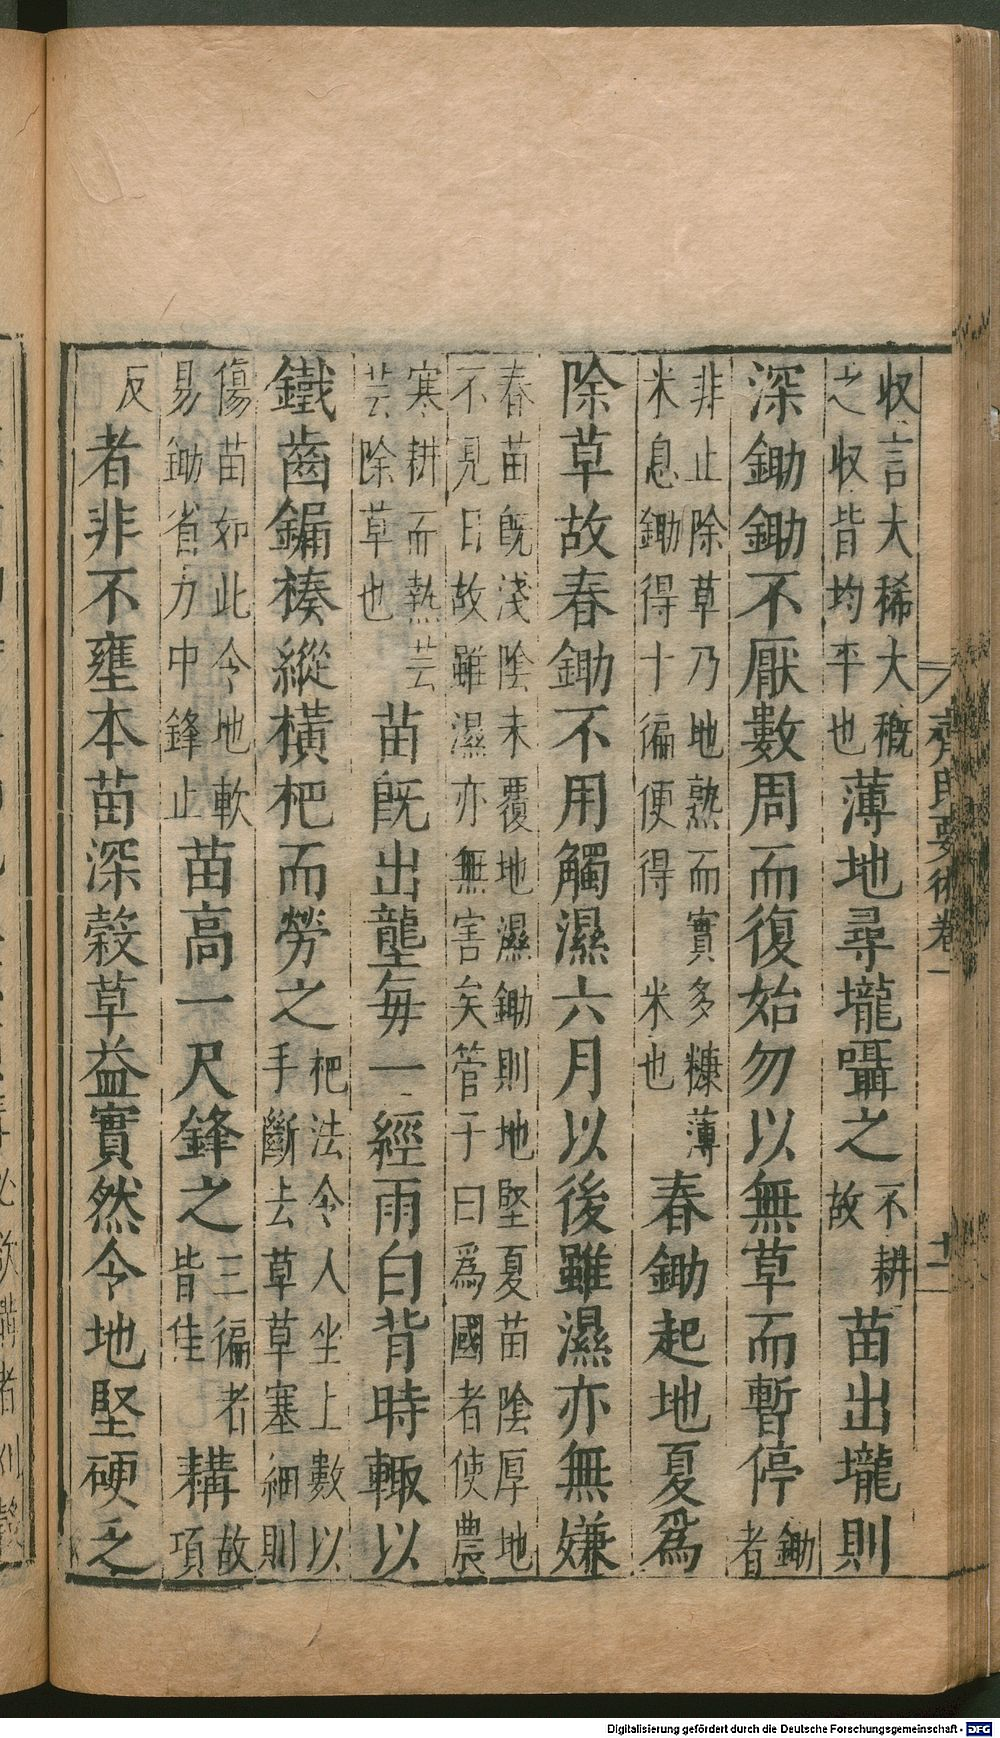 收言大稀大穊
之收皆均平也薄地尋壠躡之不耕故苗出壠則
深鋤鋤不厭數周而復始勿以無草而暫停鋤者
非止除草乃地熟而實多糠薄
米息鋤得十徧便得米也春鋤起地夏爲
除草故春鋤不用觸濕六月以後雖濕亦無嫌
春苗旣淺陰未覆地濕鋤則地堅夏苗陰厚地
不見日故雖濕亦無害矣管子曰爲國者使農
寒耕而熱芸
芸除草也苗旣出壟每一經雨白背時輙以
鐵齒鍽楱縱橫杷而勞之杷法令人坐上數以
手斷去草草塞細則
傷苗如此令地軟
易鋤省力中鋒止苗高一尺鋒之三徧者皆佳耩故項
反
者非不壅本苗深穀草益實然令地堅硬乏
齊民要術卷一
十一
Digitalisierung gefördert durch die Deutsche Forschungsgemeinschaft - DFG